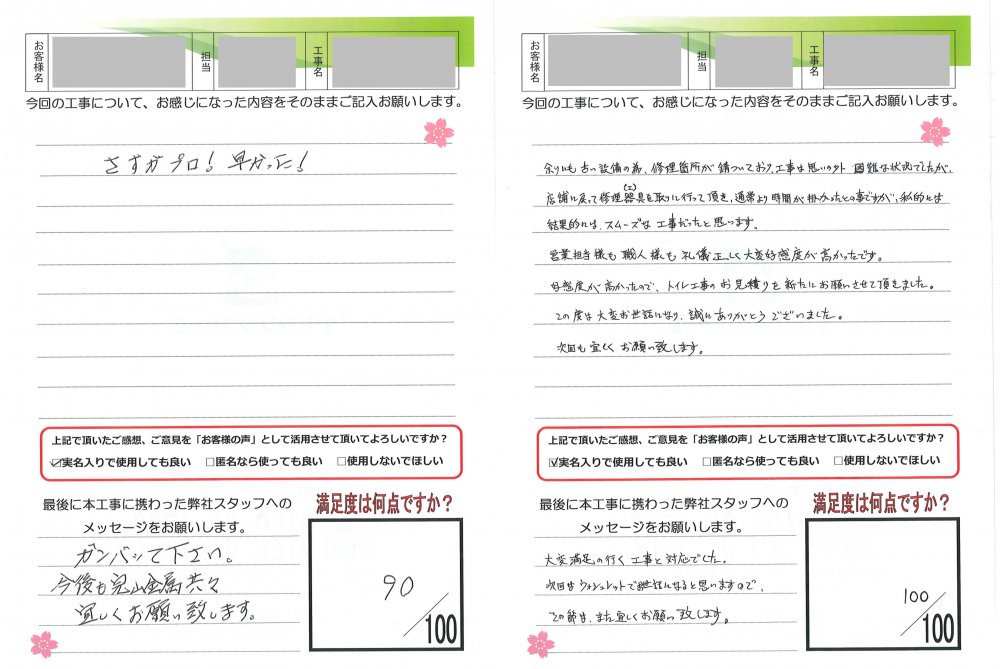 お客様名
担当
工事名
今回の工事について、お感じになった内容をそのままご記入お願いします。
さすがプロ！早かった！
上記で頂いたご感想、ご意見を「お客様の声」として活用させて頂いてよろしいですか？
☑実名入りで使用しても良い □匿名なら使っても良い □使用しないでほしい
最後に本工事に携わった弊社スタッフへの
メッセージをお願いします。
ガンバッて下さい。
今後も兌山金属共々
宜しくお願い致します。
満足度は何点ですか？
90／100
お客様名
担当
工事名
今回の工事について、お感じになった内容をそのままご記入お願いします。
余りにも古い設備の為、修理箇所が錆ついており、工事は思いの外 困難な状況でしたが、
店舗に戻って修理(工)器具を取りに行って頂き、通常より時間が掛かったとの事ですが、私的には
結果的には、スムーズな工事だったと思います。
営業担当様も職人様も礼儀正しく大変好感度が高かったです。
好感度が高かったので、トイレ工事のお見積りを新たにお願いさせて頂きました。
この度は大変お世話になり、誠にありがとうございました。
次回も宜しくお願い致します。
上記で頂いたご感想、ご意見を「お客様の声」として活用させて頂いてよろしいですか？
☑実名入りで使用しても良い □匿名なら使っても良い □使用しないでほしい
最後に本工事に携わった弊社スタッフへの
メッセージをお願いします。
大変満足の行く工事と対応でした。
次回はウォシュレットでお世話になると思いますので、
その節は、また宜しくお願い致します。
満足度は何点ですか？
100／100